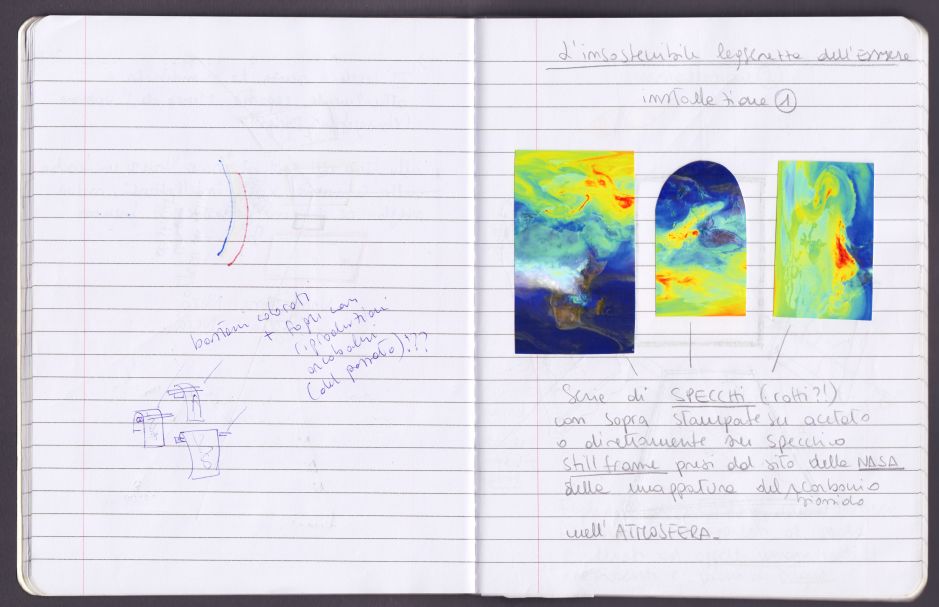 bastoni colorati
+ fogli con
riproduzioni
arcobaleni
(del passato)!??
L'insostenibile leggerezza dell'Essere
installazione 1
Serie di SPECCHI (rotti?!)
con sopra stampate su acetato
o direttamente su specchio
still frame presi dal sito della NASA
della mappatura del carbonio
biossido
nell'ATMOSFERA.